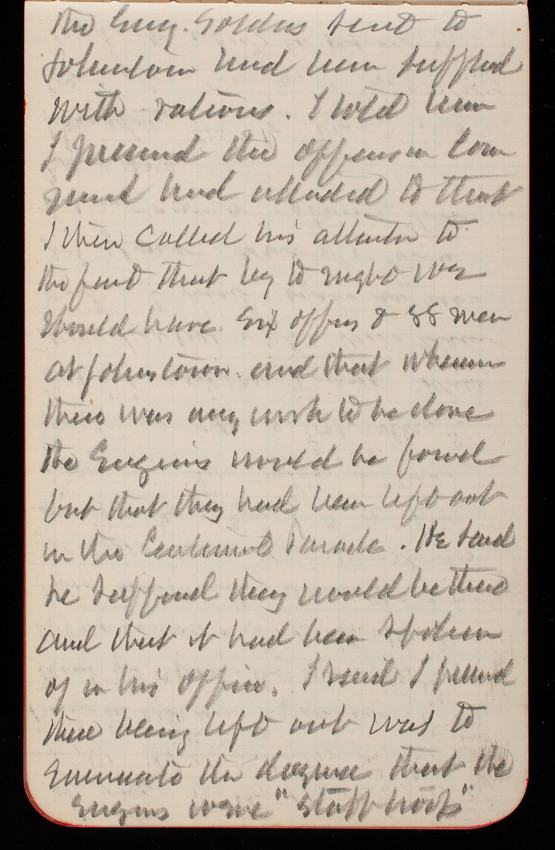 the Eng. Soldiers sent to
Johnstown had been supplied
with rations. I told him
I presumed the officer in Com
mand had attended to that
I then called his attention to
the fact that by to night we
should have Six officers & 88 men
at Johnstown and that whenever
there was any work to be done
the Engineers would be found
but that they had been left out
in the Centennial Parade. He said
he supposed they would be there
and that it had been spoken
of in his office. I said I presumed
their being left out was to
enunciate the dogma that the
Engineers were "Staff troops"